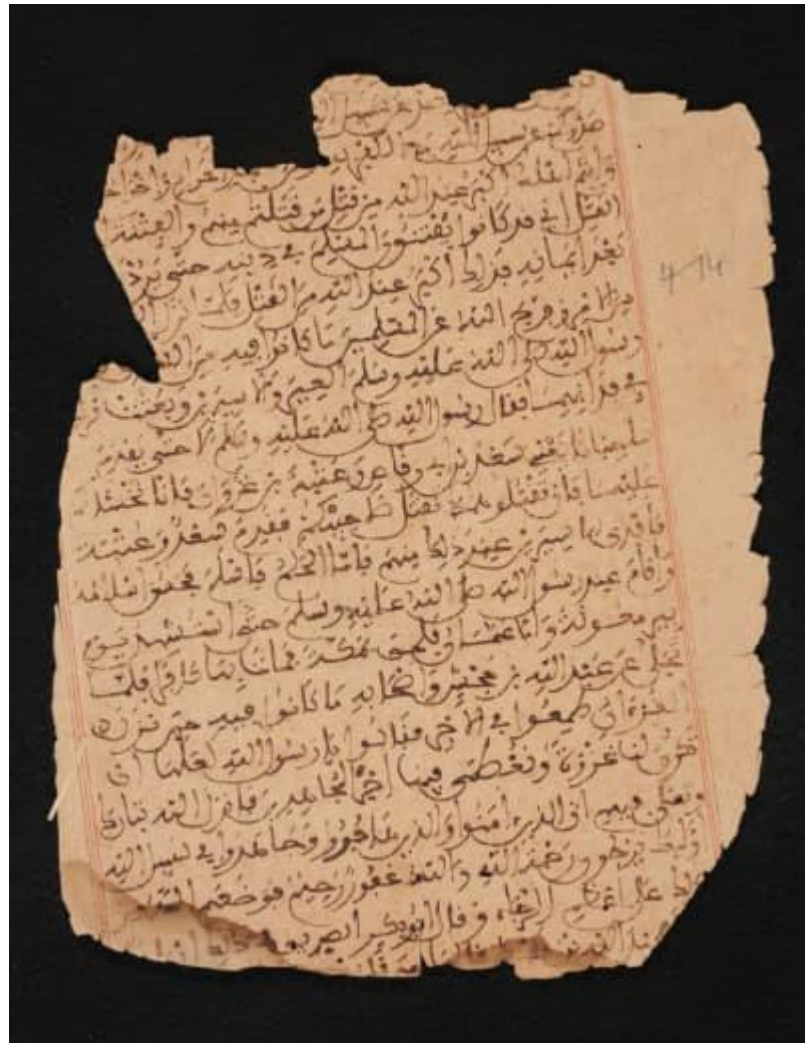 عن سبيل ا
صدوكم عن سبيل الله مع الكفر به
وانتم اهله اكبر عند الله من قتل من قتلتم منهم والفتنة
القتل اي قد كانوا يفتنون المسلم في دينه حتى يردو
بعد ايمانه فذلك اكبر عند الله من القتل فلما نزل ال
من الامر وفرج الله عن المسلمين ما كانوا فيه من
رسول الله صلى الله عليه وسلم العير والاسيرين وبعثت
في فدائهما فقال رسول الله صلى الله عليه وسلم لا حتى يقدم
صاحبانا يعني سعد بن ابي وقاص وعتبة بن غزوان فانا نخشاكم
عليهما فان تقتلوهما نقتل صاحبيكم فقدم سعد وعتبة
الاسيرين عند ذلك منهم فاما الحكم فاسلم فحسن اسلامه
واقام عند رسول الله صلى الله عليه وسلم حتى استشهد يوم
بير معونة واما عثمان فلحق بمكة فمات بها كافرا فلما
تجلى عن عبد الله بن جحش واصحابه ما كانوا فيه حين نزل
القرءان طمعوا في الاجر فقالوا يا رسول الله ان
تكون لنا غزوة ونعطى فيها اجر المجاهدين فانزل الله تبارك
وتعلى فيهم ان الذين امنوا والذين هاجروا وجاهدوا في سبيل الله
اوليك يرجون رحمة الله والله غفور رحيم فوضعهم الله
ذلك على اعظم الرجاء وقال ابو بكر الصديق
عبد الله بن
4-14